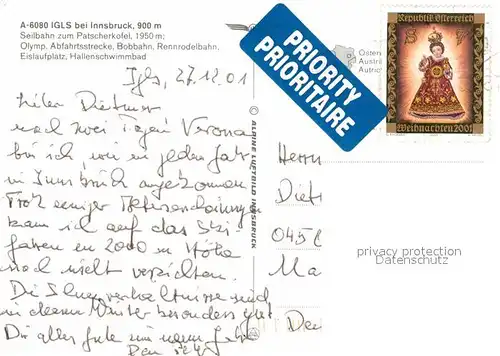 A-6080 IGLS bei Innsbruck, 900 m
Seilbahn zum Patscherkofel, 1950 m;
Olymp. Abfahrtsstrecke, Bobbahn, Rennrodelbahn,
Eislaufplatz, Hallenschwimmbad
Igls, 27.12.01
Lieber Dietmar
nach zwei Tagen Verona
bin ich wie in jedem Jahr
in Innsbruck angekommen
Trotz einiger
kann ich auf das Ski-
fahren in 2000 m Höhe
noch nicht verzichten.
Die Schneeverhältnisse sind
in diesem Winter besonders gut.
Dir alles Gute im neuen Jahr
Dein
© ALPINE LUFTBILD INNSBRUCK
PRIORITY
PRIORITAIRE
Republik Österreich
Weihnachten 2001
Öster
Austri
Autric
Herrn
Diet
045
Ma
privacy protection
Datenschutz